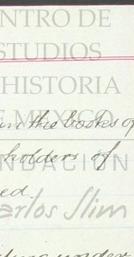 NTRO DE
STUDIOS
HISTORIA
E MEXICO
in the books of
holders of
NDACION
ed.
arlos Slim